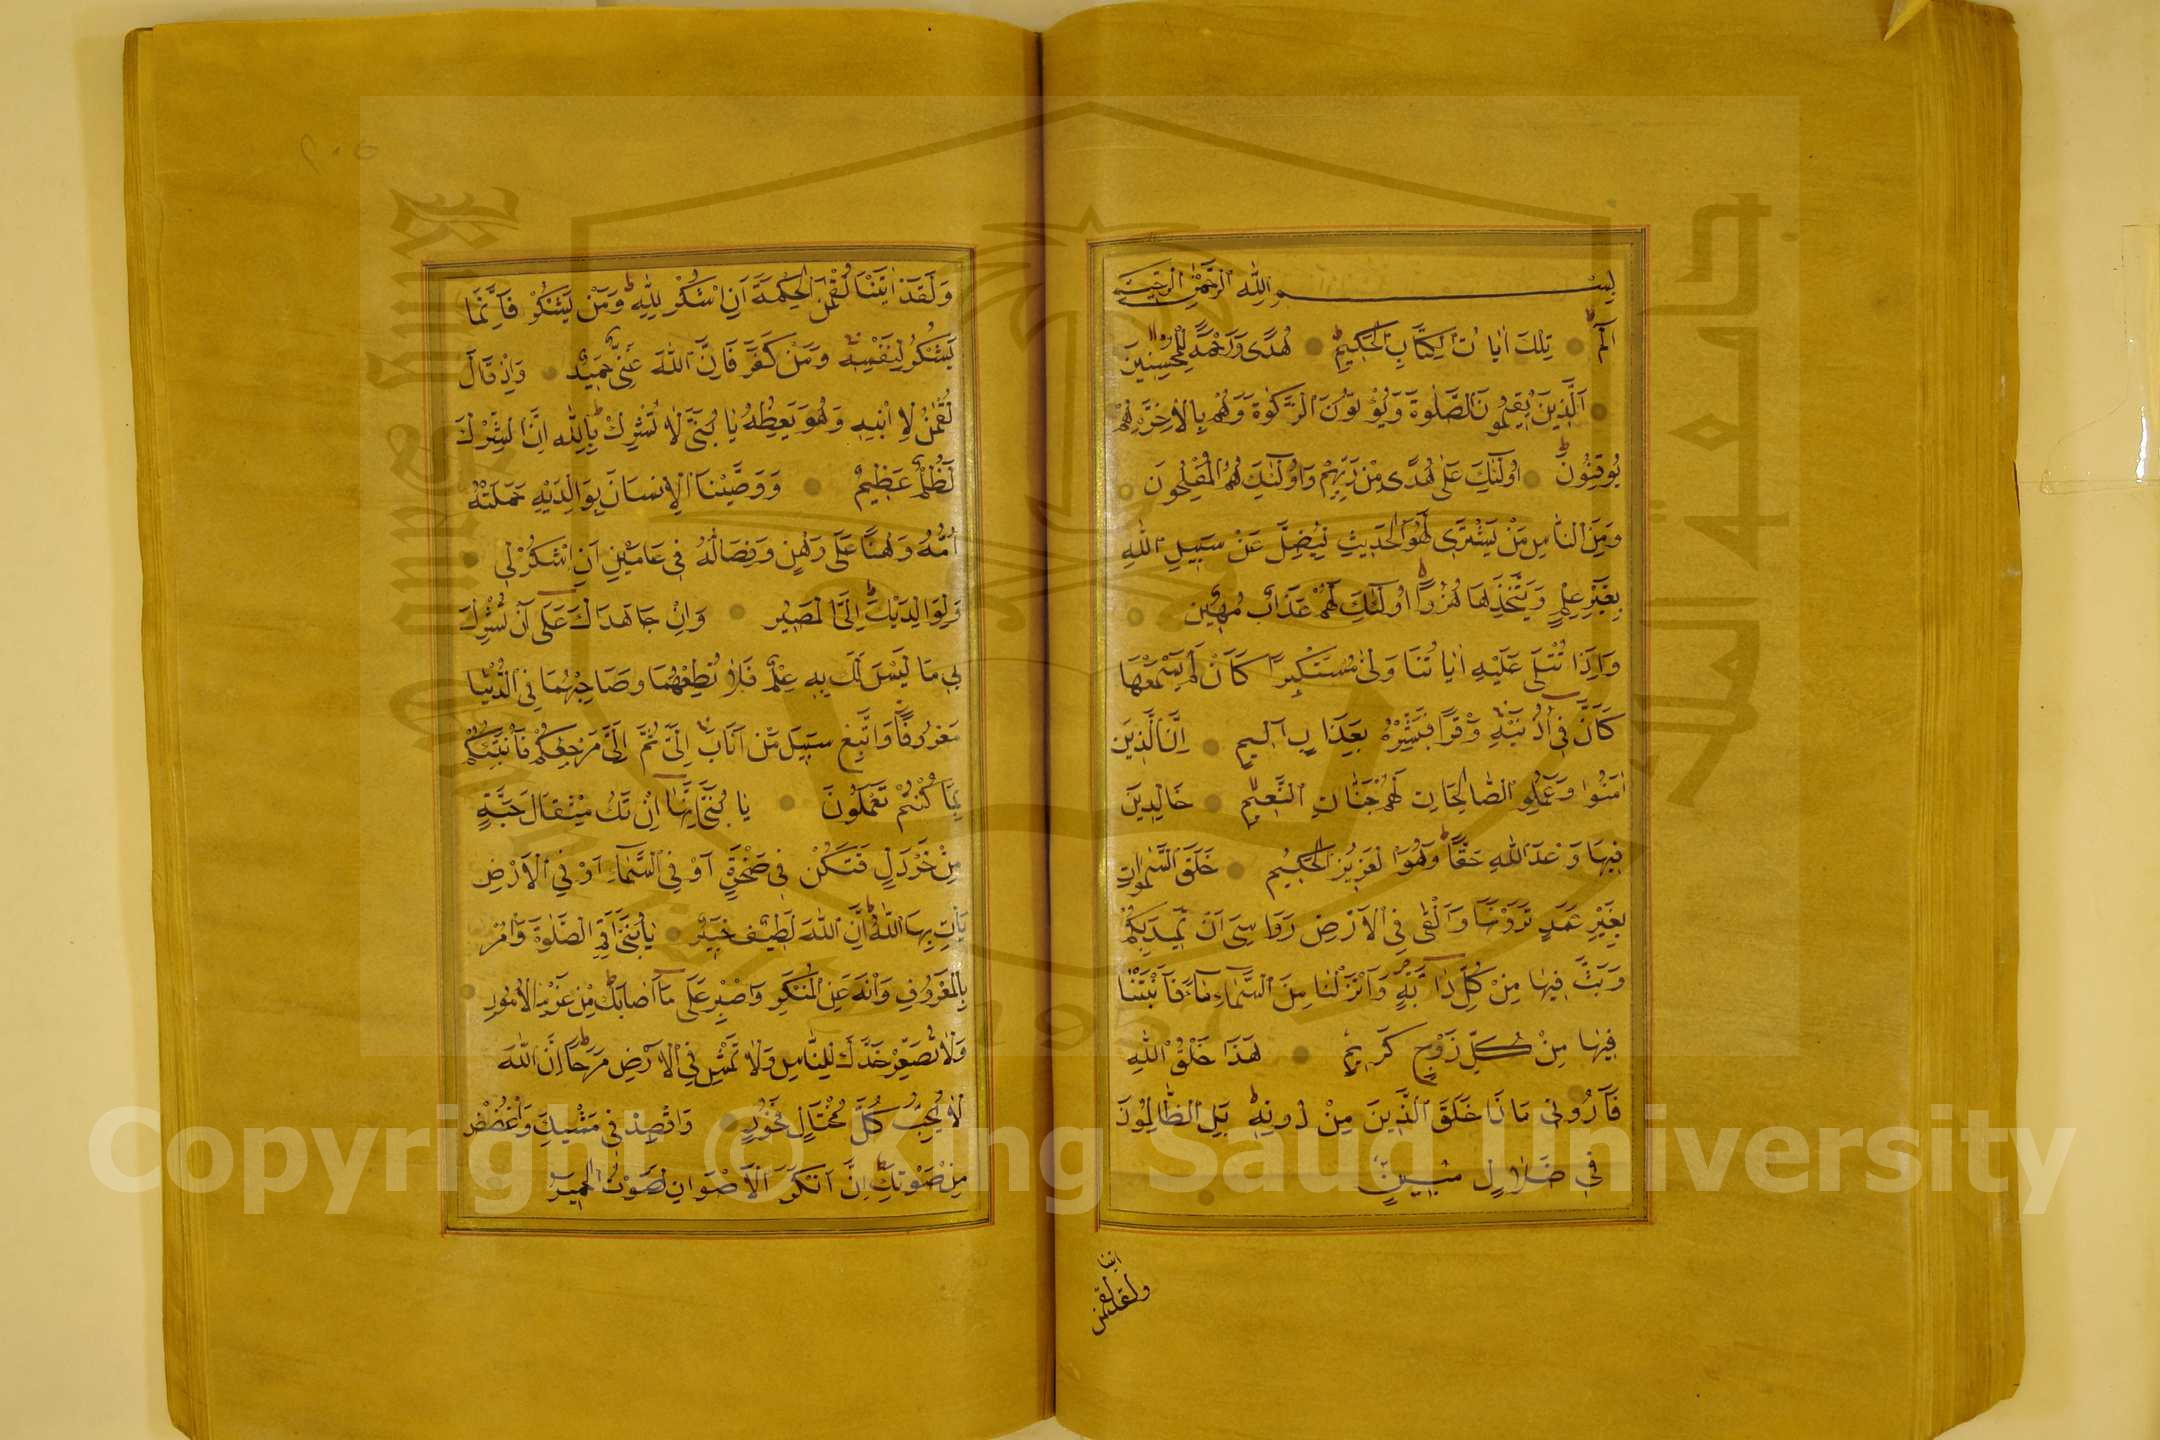 بِسْمِ اللهِ الرَّحْمٰنِ الرَّحِيمِ
الٓمٓ تِلْكَ اٰيَاتُ الْكِتَابِ الْحَكِيمِ هُدًى وَرَحْمَةً لِلْمُحْسِنِينَ
اَلَّذِينَ يُقِيمُونَ الصَّلٰوةَ وَيُؤْتُونَ الزَّكٰوةَ وَهُمْ بِالْاٰخِرَةِ هُمْ
يُوقِنُونَ اُولٰٓئِكَ عَلٰى هُدًى مِنْ رَبِّهِمْ وَاُولٰٓئِكَ هُمُ الْمُفْلِحُونَ
وَمِنَ النَّاسِ مَنْ يَشْتَرِى لَهْوَ الْحَدِيثِ لِيُضِلَّ عَنْ سَبِيلِ اللهِ
بِغَيْرِ عِلْمٍ وَيَتَّخِذَهَا هُزُوًا اُولٰٓئِكَ لَهُمْ عَذَابٌ مُهِينٌ
وَاِذَا تُتْلٰى عَلَيْهِ اٰيَاتُنَا وَلّٰى مُسْتَكْبِرًا كَاَنْ لَمْ يَسْمَعْهَا
كَاَنَّ فِى اُذُنَيْهِ وَقْرًا فَبَشِّرْهُ بِعَذَابٍ اَلِيمٍ اِنَّ الَّذِينَ
اٰمَنُوا وَعَمِلُوا الصَّالِحَاتِ لَهُمْ جَنَّاتُ النَّعِيمِ خَالِدِينَ
فِيهَا وَعْدَ اللهِ حَقًّا وَهُوَ الْعَزِيزُ الْحَكِيمُ خَلَقَ السَّمٰوَاتِ
بِغَيْرِ عَمَدٍ تَرَوْنَهَا وَاَلْقٰى فِى الْاَرْضِ رَوَاسِىَ اَنْ تَمِيدَ بِكُمْ
وَبَثَّ فِيهَا مِنْ كُلِّ دَآبَّةٍ وَاَنْزَلْنَا مِنَ السَّمَآءِ مَآءً فَاَنْبَتْنَا
فِيهَا مِنْ كُلِّ زَوْجٍ كَرِيمٍ هٰذَا خَلْقُ اللهِ
فَاَرُونِى مَاذَا خَلَقَ الَّذِينَ مِنْ دُونِهِ بَلِ الظَّالِمُونَ
فِى ضَلَالٍ مُبِينٍ
ولقد اتينا لقمن
وَلَقَدْ اٰتَيْنَا لُقْمٰنَ الْحِكْمَةَ اَنِ اشْكُرْ لِلّٰهِ وَمَنْ يَشْكُرْ فَاِنَّمَا
يَشْكُرُ لِنَفْسِهِ وَمَنْ كَفَرَ فَاِنَّ اللهَ غَنِىٌّ حَمِيدٌ وَاِذْ قَالَ
لُقْمٰنُ لِابْنِهِ وَهُوَ يَعِظُهُ يَا بُنَىَّ لَا تُشْرِكْ بِاللهِ اِنَّ الشِّرْكَ
لَظُلْمٌ عَظِيمٌ وَوَصَّيْنَا الْاِنْسَانَ بِوَالِدَيْهِ حَمَلَتْهُ
اُمُّهُ وَهْنًا عَلٰى وَهْنٍ وَفِصَالُهُ فِى عَامَيْنِ اَنِ اشْكُرْ لِى
وَلِوَالِدَيْكَ اِلَىَّ الْمَصِيرُ وَاِنْ جَاهَدَاكَ عَلٰٓى اَنْ تُشْرِكَ
بِى مَا لَيْسَ لَكَ بِهِ عِلْمٌ فَلَا تُطِعْهُمَا وَصَاحِبْهُمَا فِى الدُّنْيَا
مَعْرُوفًا وَاتَّبِعْ سَبِيلَ مَنْ اَنَابَ اِلَىَّ ثُمَّ اِلَىَّ مَرْجِعُكُمْ فَاُنَبِّئُكُمْ
بِمَا كُنْتُمْ تَعْمَلُونَ يَا بُنَىَّ اِنَّهَا اِنْ تَكُ مِثْقَالَ حَبَّةٍ
مِنْ خَرْدَلٍ فَتَكُنْ فِى صَخْرَةٍ اَوْ فِى السَّمٰوَاتِ اَوْ فِى الْاَرْضِ
يَاْتِ بِهَا اللهُ اِنَّ اللهَ لَطِيفٌ خَبِيرٌ يَا بُنَىَّ اَقِمِ الصَّلٰوةَ وَاْمُرْ
بِالْمَعْرُوفِ وَانْهَ عَنِ الْمُنْكَرِ وَاصْبِرْ عَلٰى مَآ اَصَابَكَ مِنْ عَزْمِ الْاُمُورِ
وَلَا تُصَعِّرْ خَدَّكَ لِلنَّاسِ وَلَا تَمْشِ فِى الْاَرْضِ مَرَحًا اِنَّ اللهَ
لَا يُحِبُّ كُلَّ مُخْتَالٍ فَخُورٍ وَاقْصِدْ فِى مَشْيِكَ وَاغْضُضْ
مِنْ صَوْتِكَ اِنَّ اَنْكَرَ الْاَصْوَاتِ لَصَوْتُ الْحَمِيرِ
Copyright © King Saud University
King Saud University
جامعة الملك سعود
1957